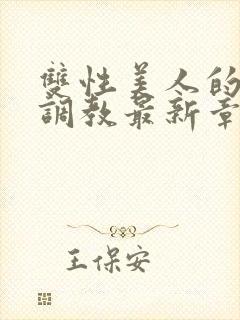 雙性美人的
調教最新章
王保安